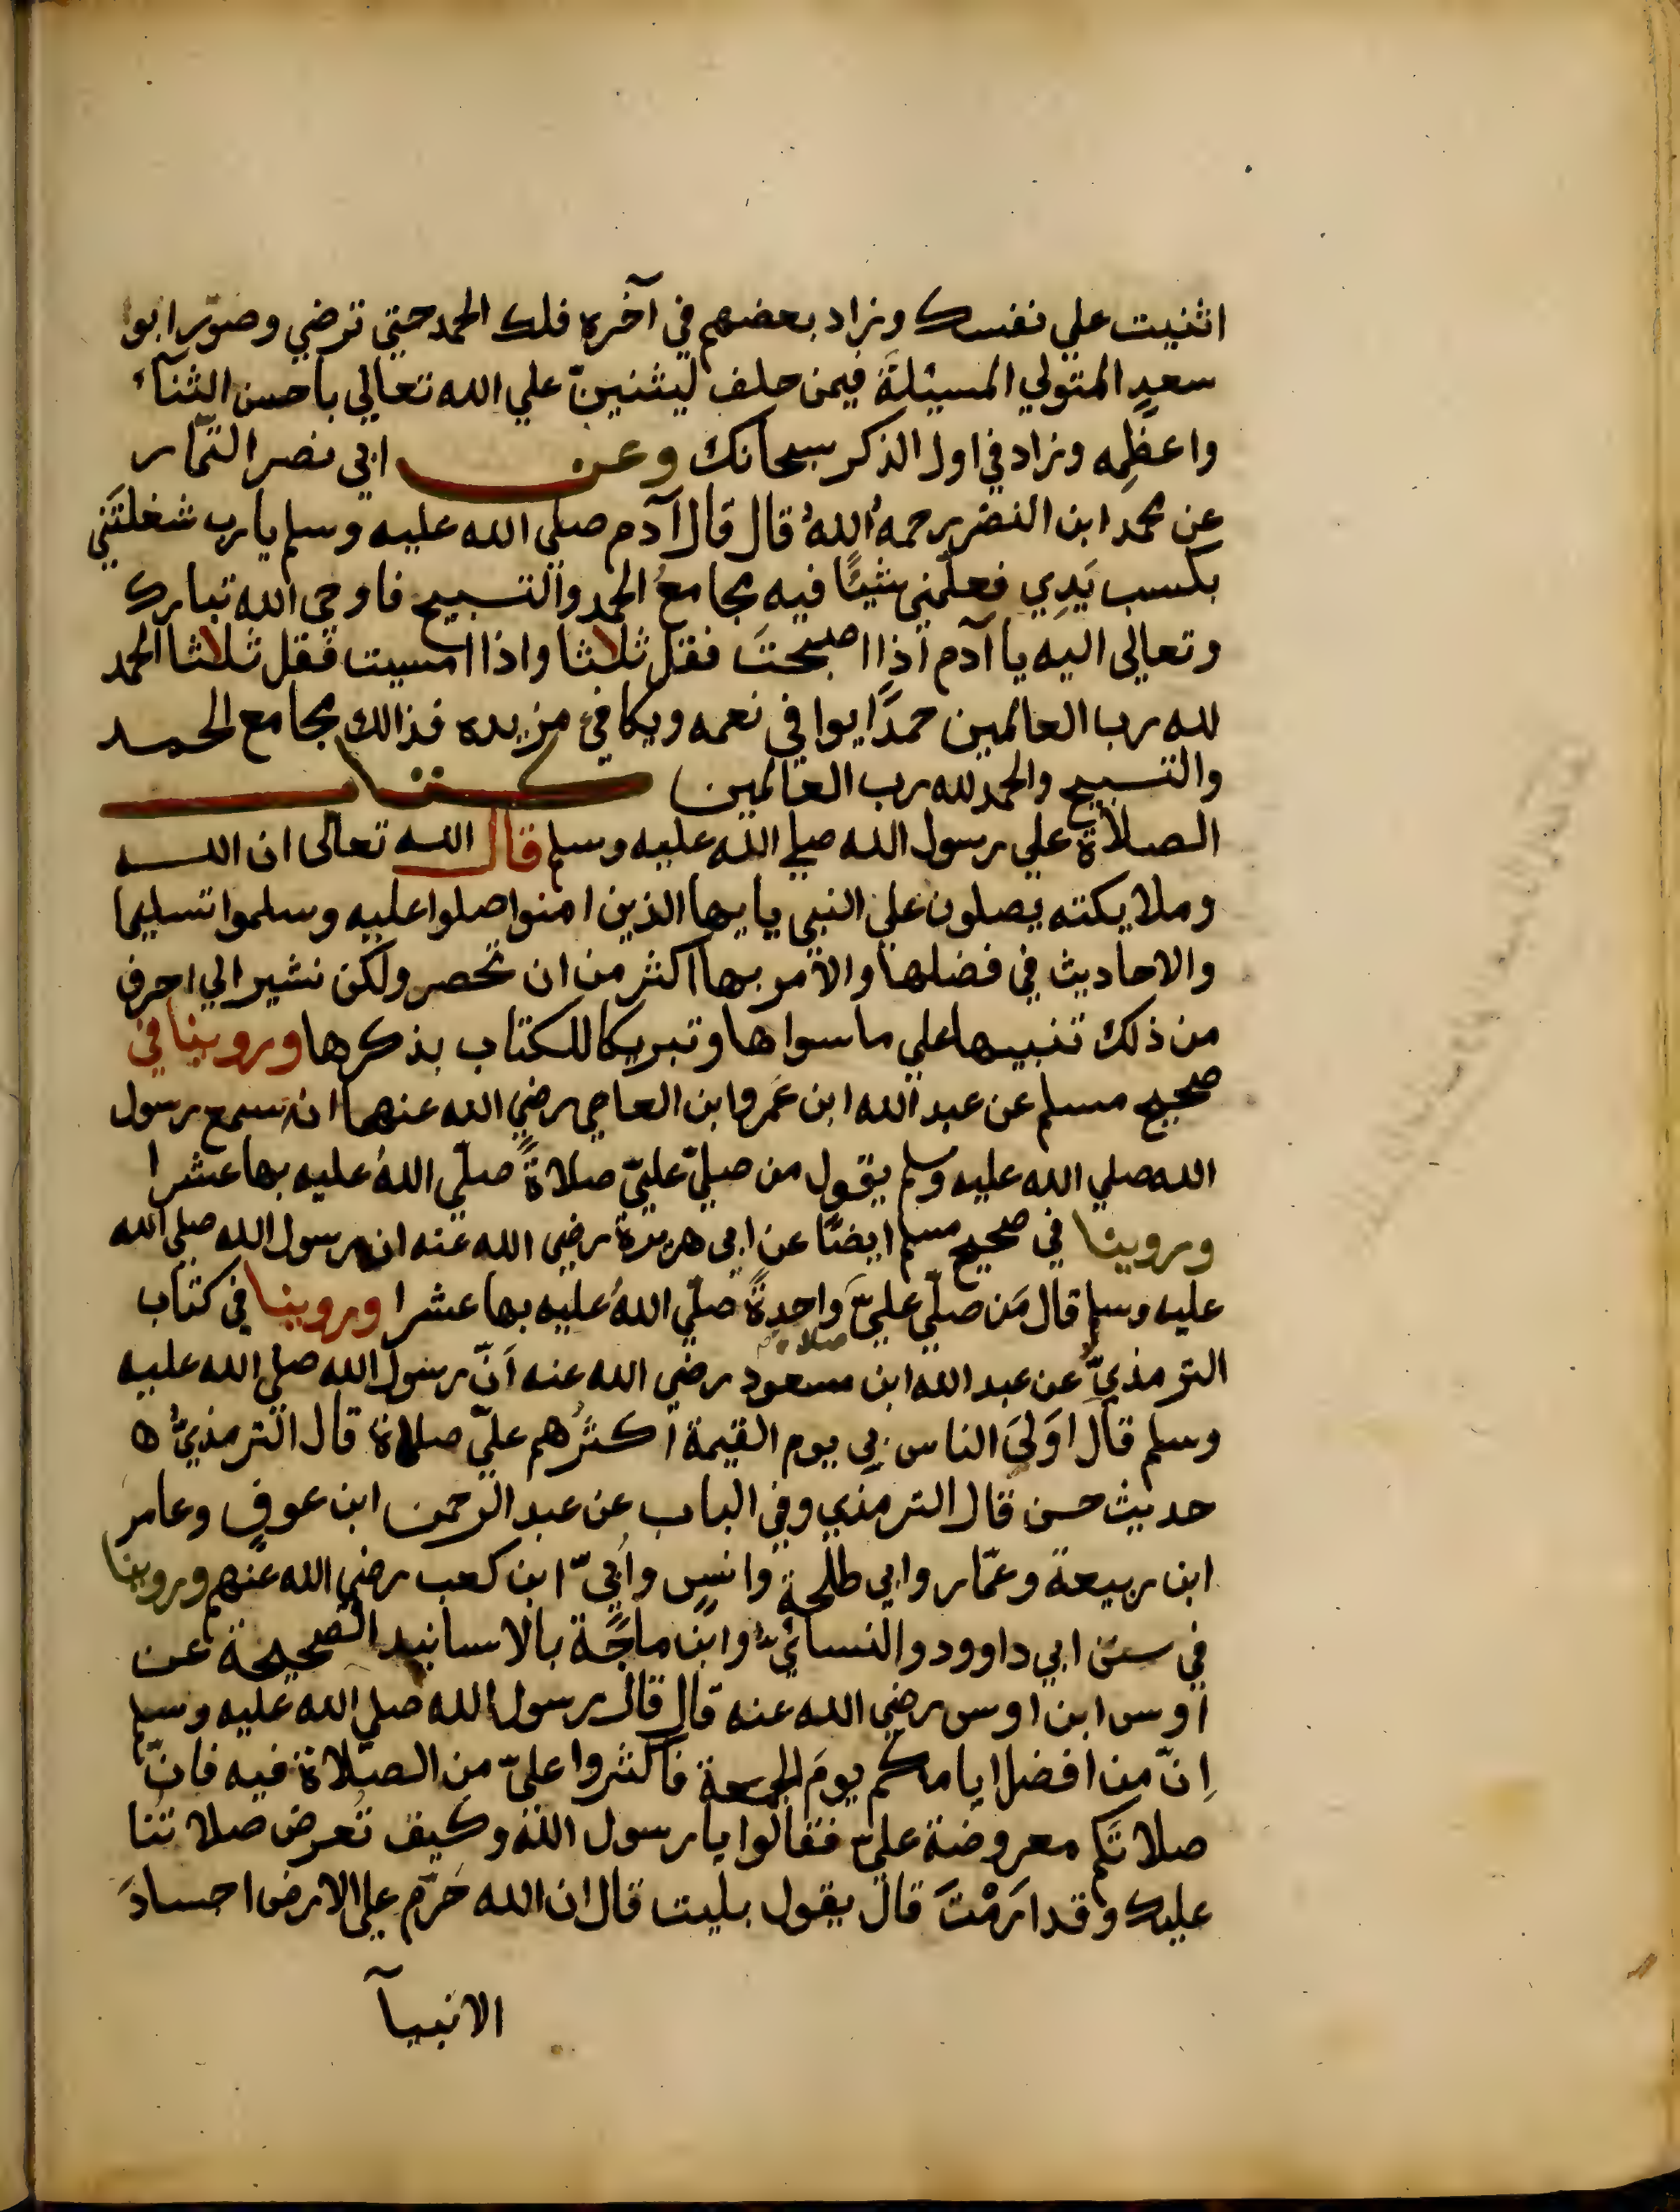 اثنيت علي نفسك وزاد بعضهم في آخره فلك الحمد حتي ترضي وصوّر ابوا
سعدٍ المتولي المسئلةَ فيمن حلف ليثنينّ علي الله تعالي باحسن الثنآء
واعظمِه وزاد في اول الذكر سبحانك وعن ابي نصر التمّار
عن محمد ابن النضر رحمهُ اللهُ قال قال آدم صلي الله عليه وسلم يا رب شغلتَني
بكسب يَدِي فعلّمني شيًا فيه مجامعُ الحمد والتسبيح فاوحي الله تبارك
وتعالي اليه يا آدم اذا اصبحتَ فقل ثلاثا واذا امسيت فقل ثلاثا الحمد
لله رب العالمين حمدًا يوافي نعمه ويكافيء مزيده فذالك مجامع الحمد
والتسبيح والحمد لله رب العالمين كتاب
الصلاة علي رسول الله صلي الله عليه وسلم قال الله تعالى ان الله
وملايكته يصلون علي النبي يايها الذين امنوا صلوا عليه وسلموا تسليما
والاحاديث في فضلها والامر بها اكثر من ان تحصر ولكن نشير الي احرف
من ذلك تنبيها علي ما سواها وتبريكا للكتاب بذكرها وروينا في
صحيح مسلم عن عبد الله ابن عَمرو ابن العاصي رضي الله عنهما انه سمع رسول
الله صلي الله عليه وسلم يقول من صليّ عليّ صلاةً صلّي اللهُ عليه بها عشرا
وروينا في صحيح مسلم ايضًا عن ابي هريرة رضي الله عنه ان رسول الله صلي الله
عليه وسلم قال مَن صلّي عليَّ واحدةً صلّي اللهُ عليه بها عشرا وروينا في كتاب
صلاة
الترمذيِّ عن عبد الله ابن مسعود رضي الله عنه اَنّ رسول الله صلي الله عليه
وسلم قال اَولَى الناس بي يوم القيمة اكثرُهم عليّ صلاة قال الترمذيُّ ها
حديث حسن قال الترمذي وفي الباب عن عبد الرحمن ابن عوفٍ وعامر
ابن ربيعة وعمّار وابي طلحة وانسٍ واُبيّ ابن كعب رضي الله عنهم وروينا
في سنن ابي داوود والنسائيّ وابن ماجَة بالاسانيد الصحيحة عن
اوس ابن اوس رضي الله عنه قال قال رسول الله صلي الله عليه وسلم
اِنّ من افضل ايامكم يومَ الجمعة فاكثروا عليّ من الصلاة فيه فانّ
صلاتَكم معروضة عليّ فقالوا يا رسول الله وكيف تُعرض صلاتُنا
عليك وقد ارَمْتَ قال يقول بليت قال ان الله حَرّم علي الارض اجسادَ
الانبيآ